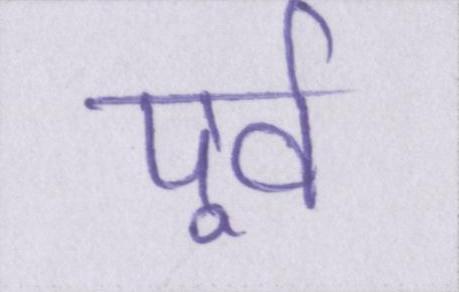 पूर्व